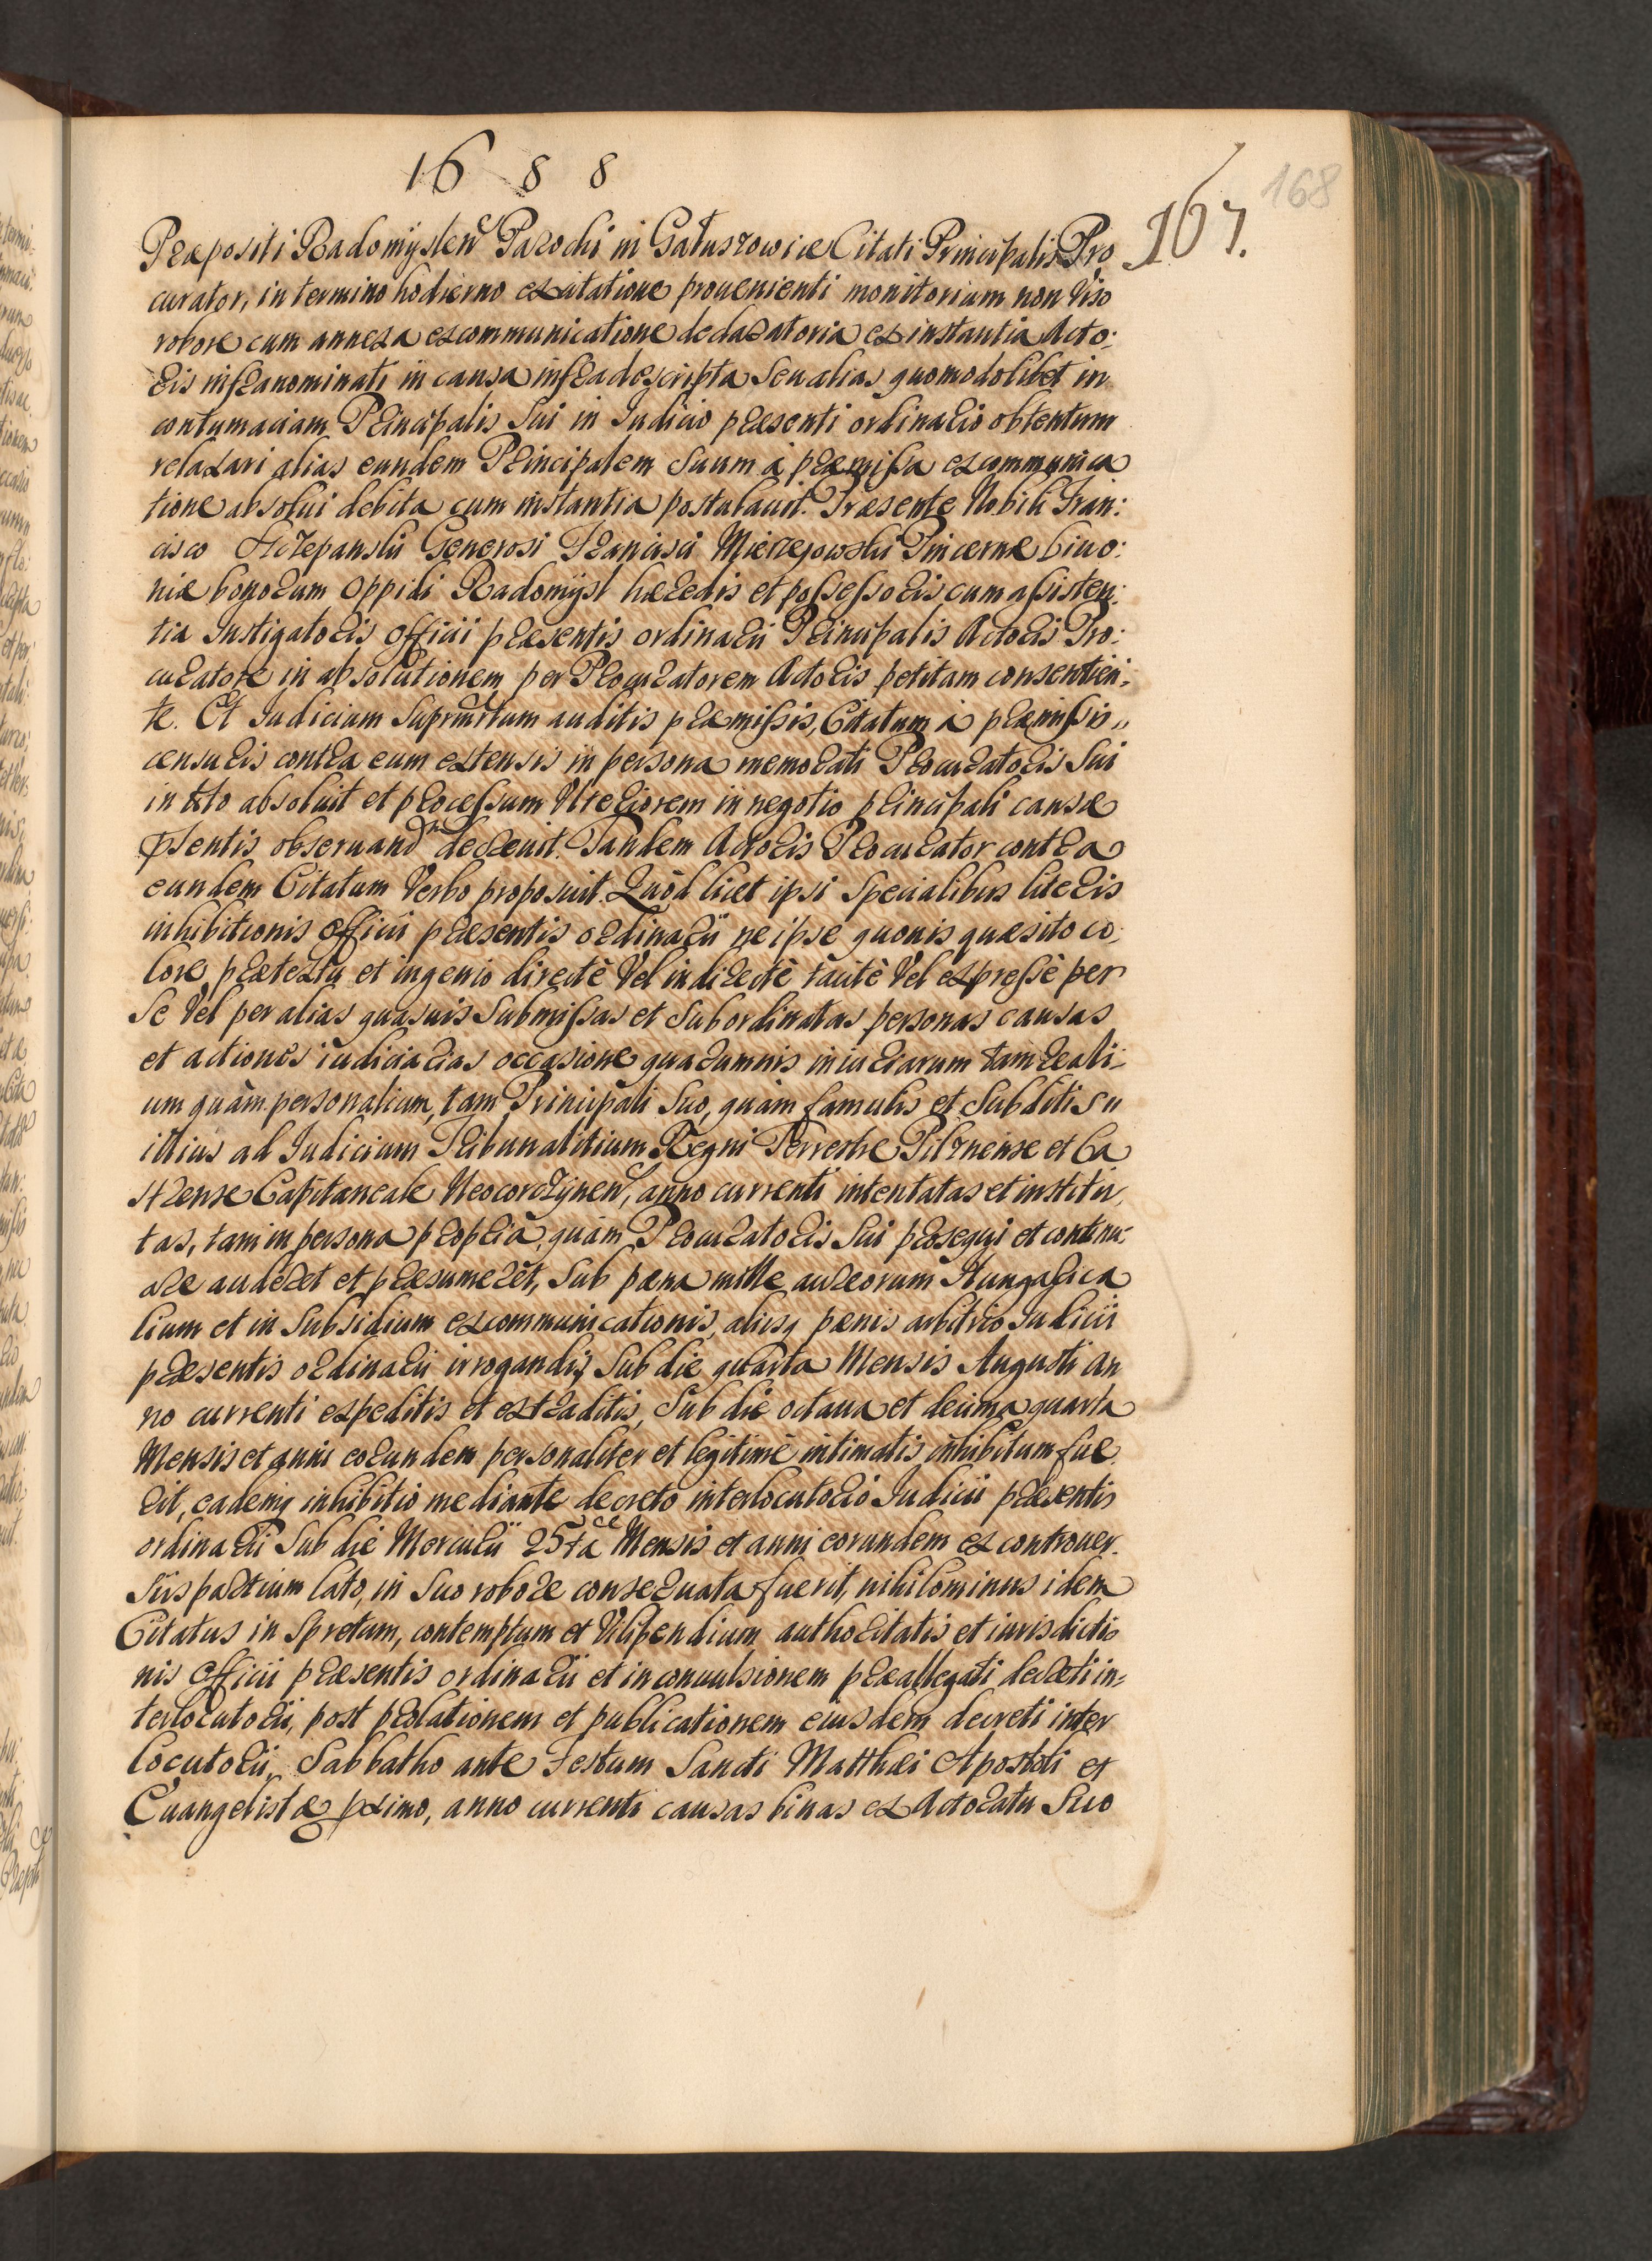 1688
167.
168
Præpositi Radomyslen Parochi in Gałuszowice Citati Principalis Pro
curator, in termino hodierno ex citatione prouenienti monitorium non viso
robore cum annexa excommunicatione declaratoria ex instantia Acto:
ris infranominati in causa infradescripta seu alias quomodolibet in
contumaciam Principalis sui in Iudicio præsenti ordinario obtentum
relaxari alias eundem Principalem suum à præmissa excommunica
tione absolui debita cum instantia postulauit. Præsente Nobili Fran:
cisco Szczepanski Generosi Francisci Mierzejowski Pincernæ Liuo:
niæ bonorum oppidi Radomysl hæredis et possessoris, cum assisten:
tia Instigatoris officii præsentis ordinarii Principalis Actoris Pro:
curatore in absolutionem per Procuratorem Actoris petitam consentien:
te. Et Iudicium suprascriptum auditis præmissis, Citatum à præmissis
censuris contra eum extensis in persona memorati Procuratoris sui
in toto absoluit et processum Vlteriorem in negotio principali causæ
pñtentis obseruand decreuit. Tandem Actoris Procurator contra
eundem Citatum Verbo proposuit. Quòd licet ipsi specialibus literis
inhibitionis officii præsentis ordinarii ne ipse quouis quæsito co:
lore, prætextu et ingenio directè Vel indirectè tacitè Vel expressè per
se Vel per alias quasuis submissas et subordinatas personas causas
et actiones iudiciarias occasione quarumuis iniuriarum tam reali:
um quàm personalium, tam Principali suo, quàm famulis et subditis
illius ad Iudicium Tribunalitium Regni Terrestre Pilznense et Ca
strense Capitaneale Neocorczynen, anno currenti intentatas et institu,
tas, tam in persona propria, quàm Procuratoris sui prosequi et continu:
are auderet et præsumeret, sub pæna mille aureorum Hungarica
lium et in subsidium excommunicationis, aliisq pænis arbitrio Iudicii
præsentis ordinarii irrogandis, sub die quarta Mensis Augusti an
no currenti expeditis et extraditis, sub die octaua et decima quarta
Mensis et anni eorundem personaliter et legitimè intimatis inhibitum fue
rit, eademq inhibitio mediante decreto interlocutorio Iudicii præsentis
ordinarii sub die Mercurii 25ta Mensis et anni eorundem ex controuer
siis partium lato, in suo robore conseruata fuerit, nihilominus idem
Citatus in spretum, contemptum et Vilipendium authoritatis et iurisdictio
nis officii præsentis ordinarii et in conuulsionem præallegati decreti in:
terlocutorii, post prolationem et publicationem eiusdem decreti inter
locutorii, Sabbatho ante Festum Sancti Matthæi Apostoli et
Euangelistæ pximo, anno currenti causas binas ex Actoratu suo